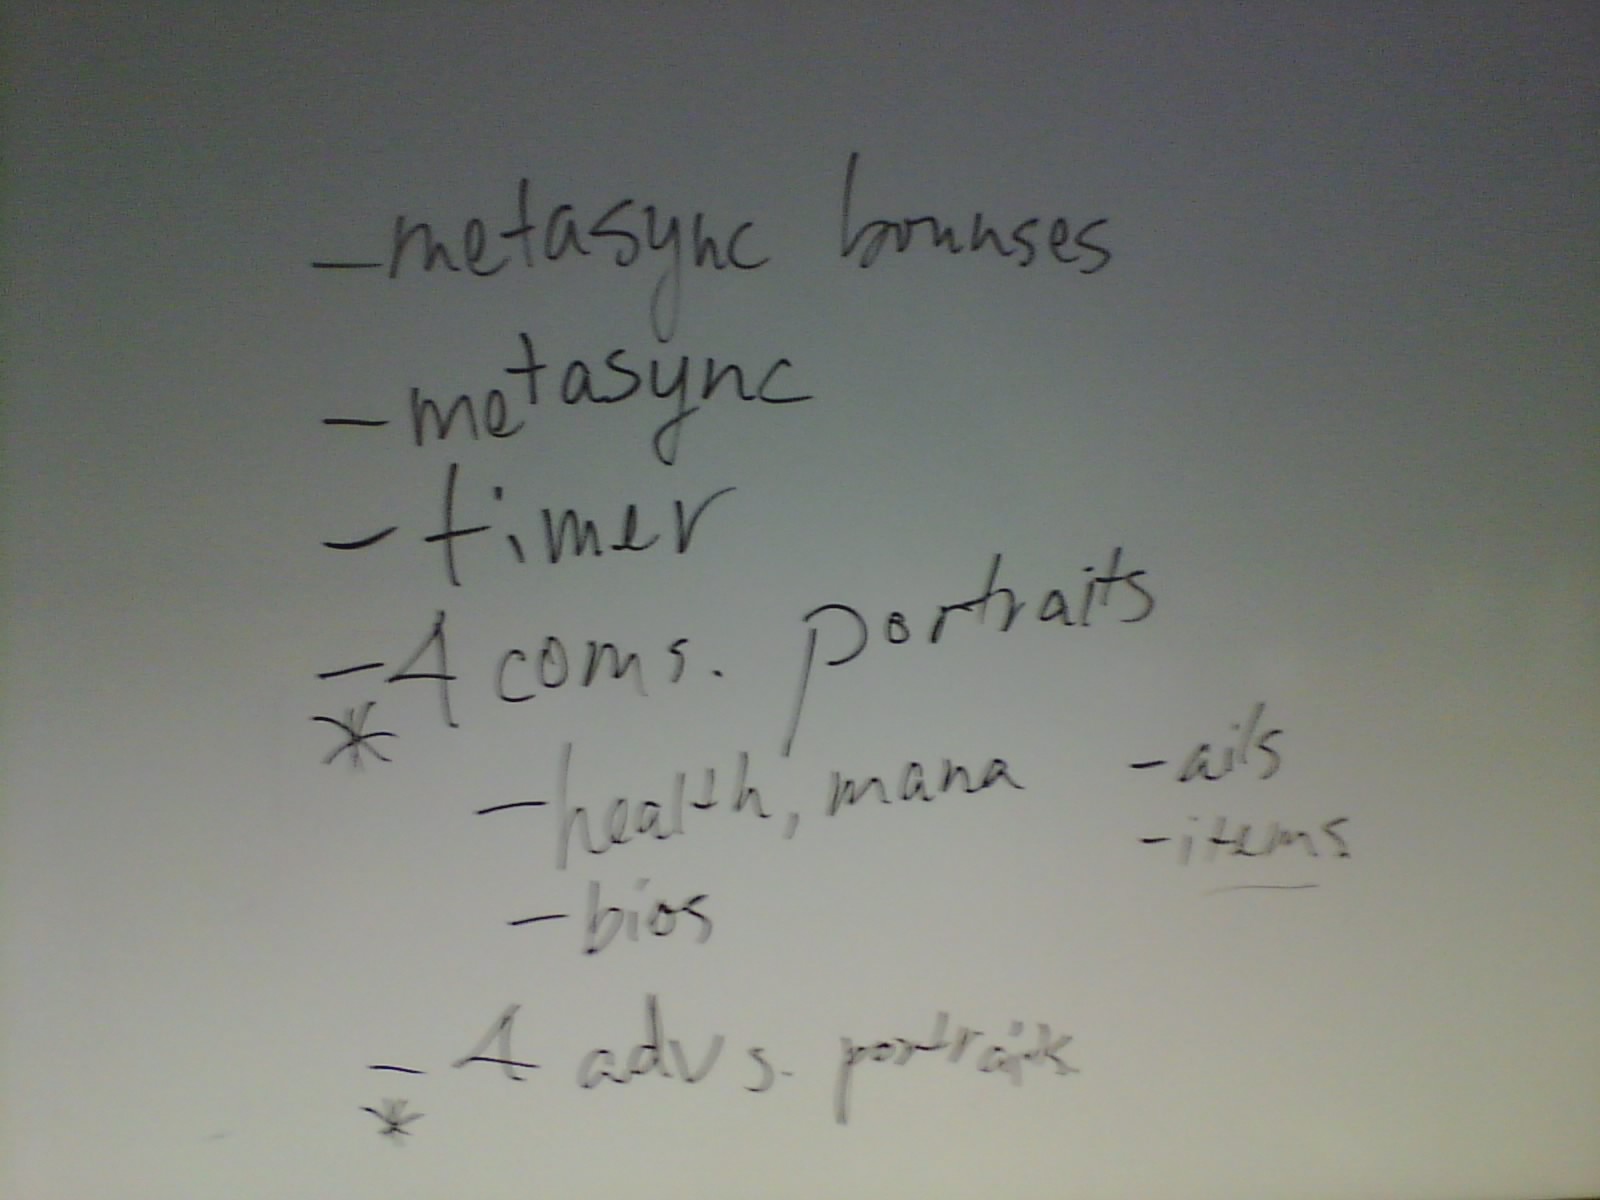 - metasync bounses
- metasync
- timer
- 4 coms. portraits
*
- health, mana - ails
- items
- bios
- 4 advs. portraits
*